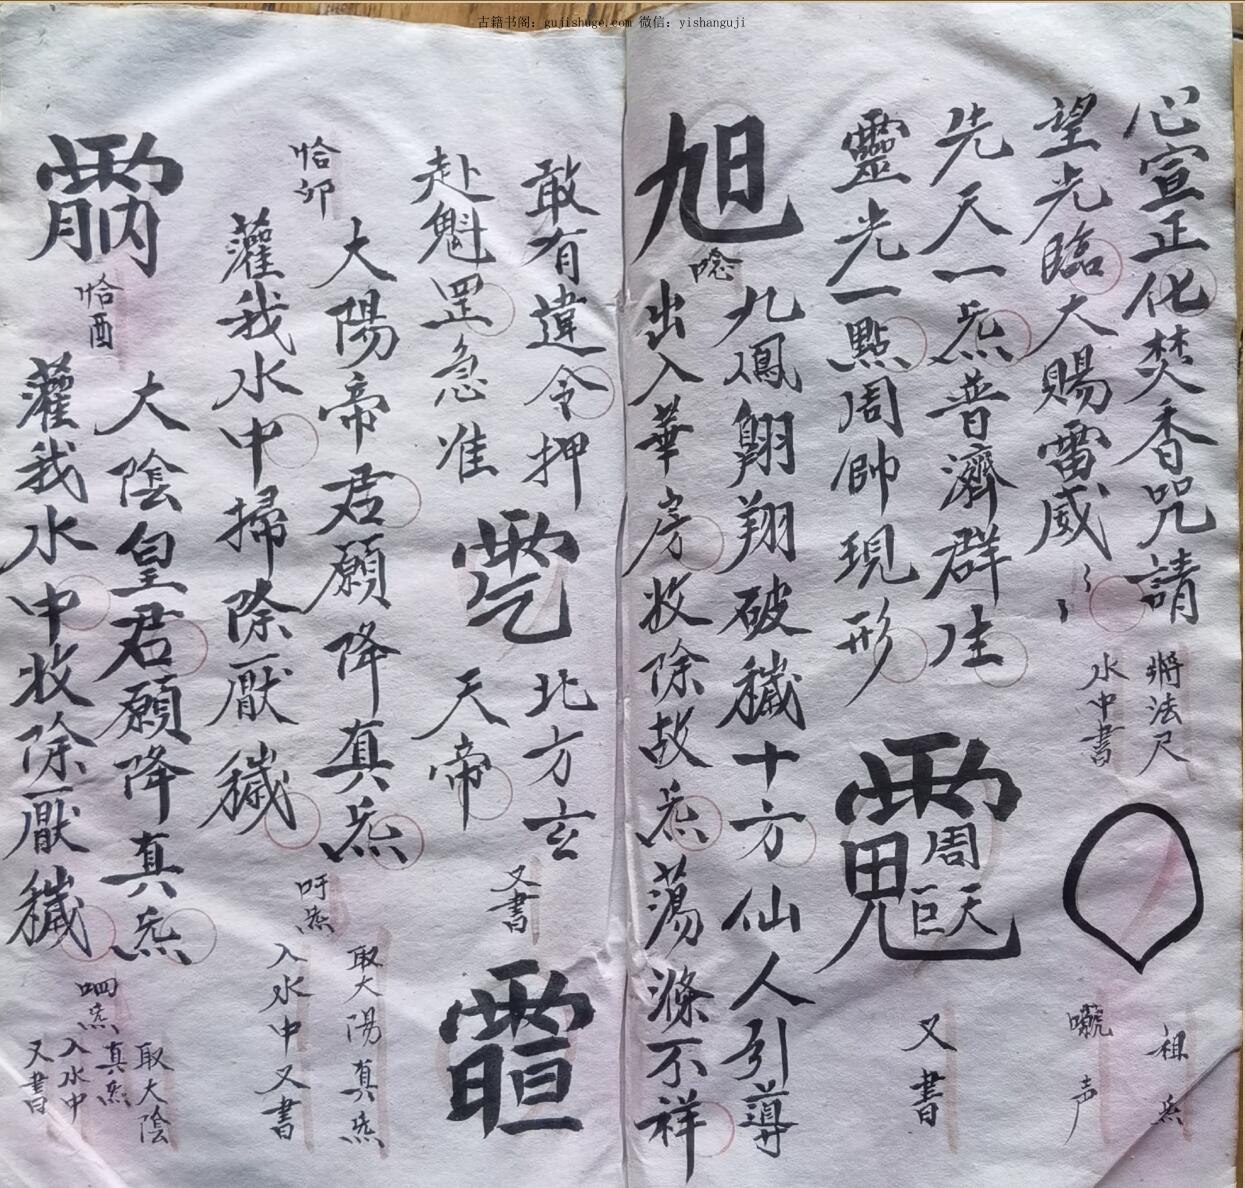 古籍书阁：gujishuge.com 微信：yishanguji
心宣正化焚香咒請
將法尺
祖炁
望光臨大賜雷威
水中書
聲
先天一炁普濟群生
靈光一點周帥現形
周
天
巨
又書
旭
唸
九鳳翱翔破穢十方仙人引導
出入華房收除故炁蕩滌不祥
敢有違令押
北方玄
赴魁罡急准
天帝
又書
恰卯
大陽帝君願降真炁
吁炁
取大陽真炁
灌我水中掃除厭穢
入水中又書
恰酉
大陰皇君願降真炁
取大陰
真炁
灌我水中收除厭穢
呬炁
入水中
又書